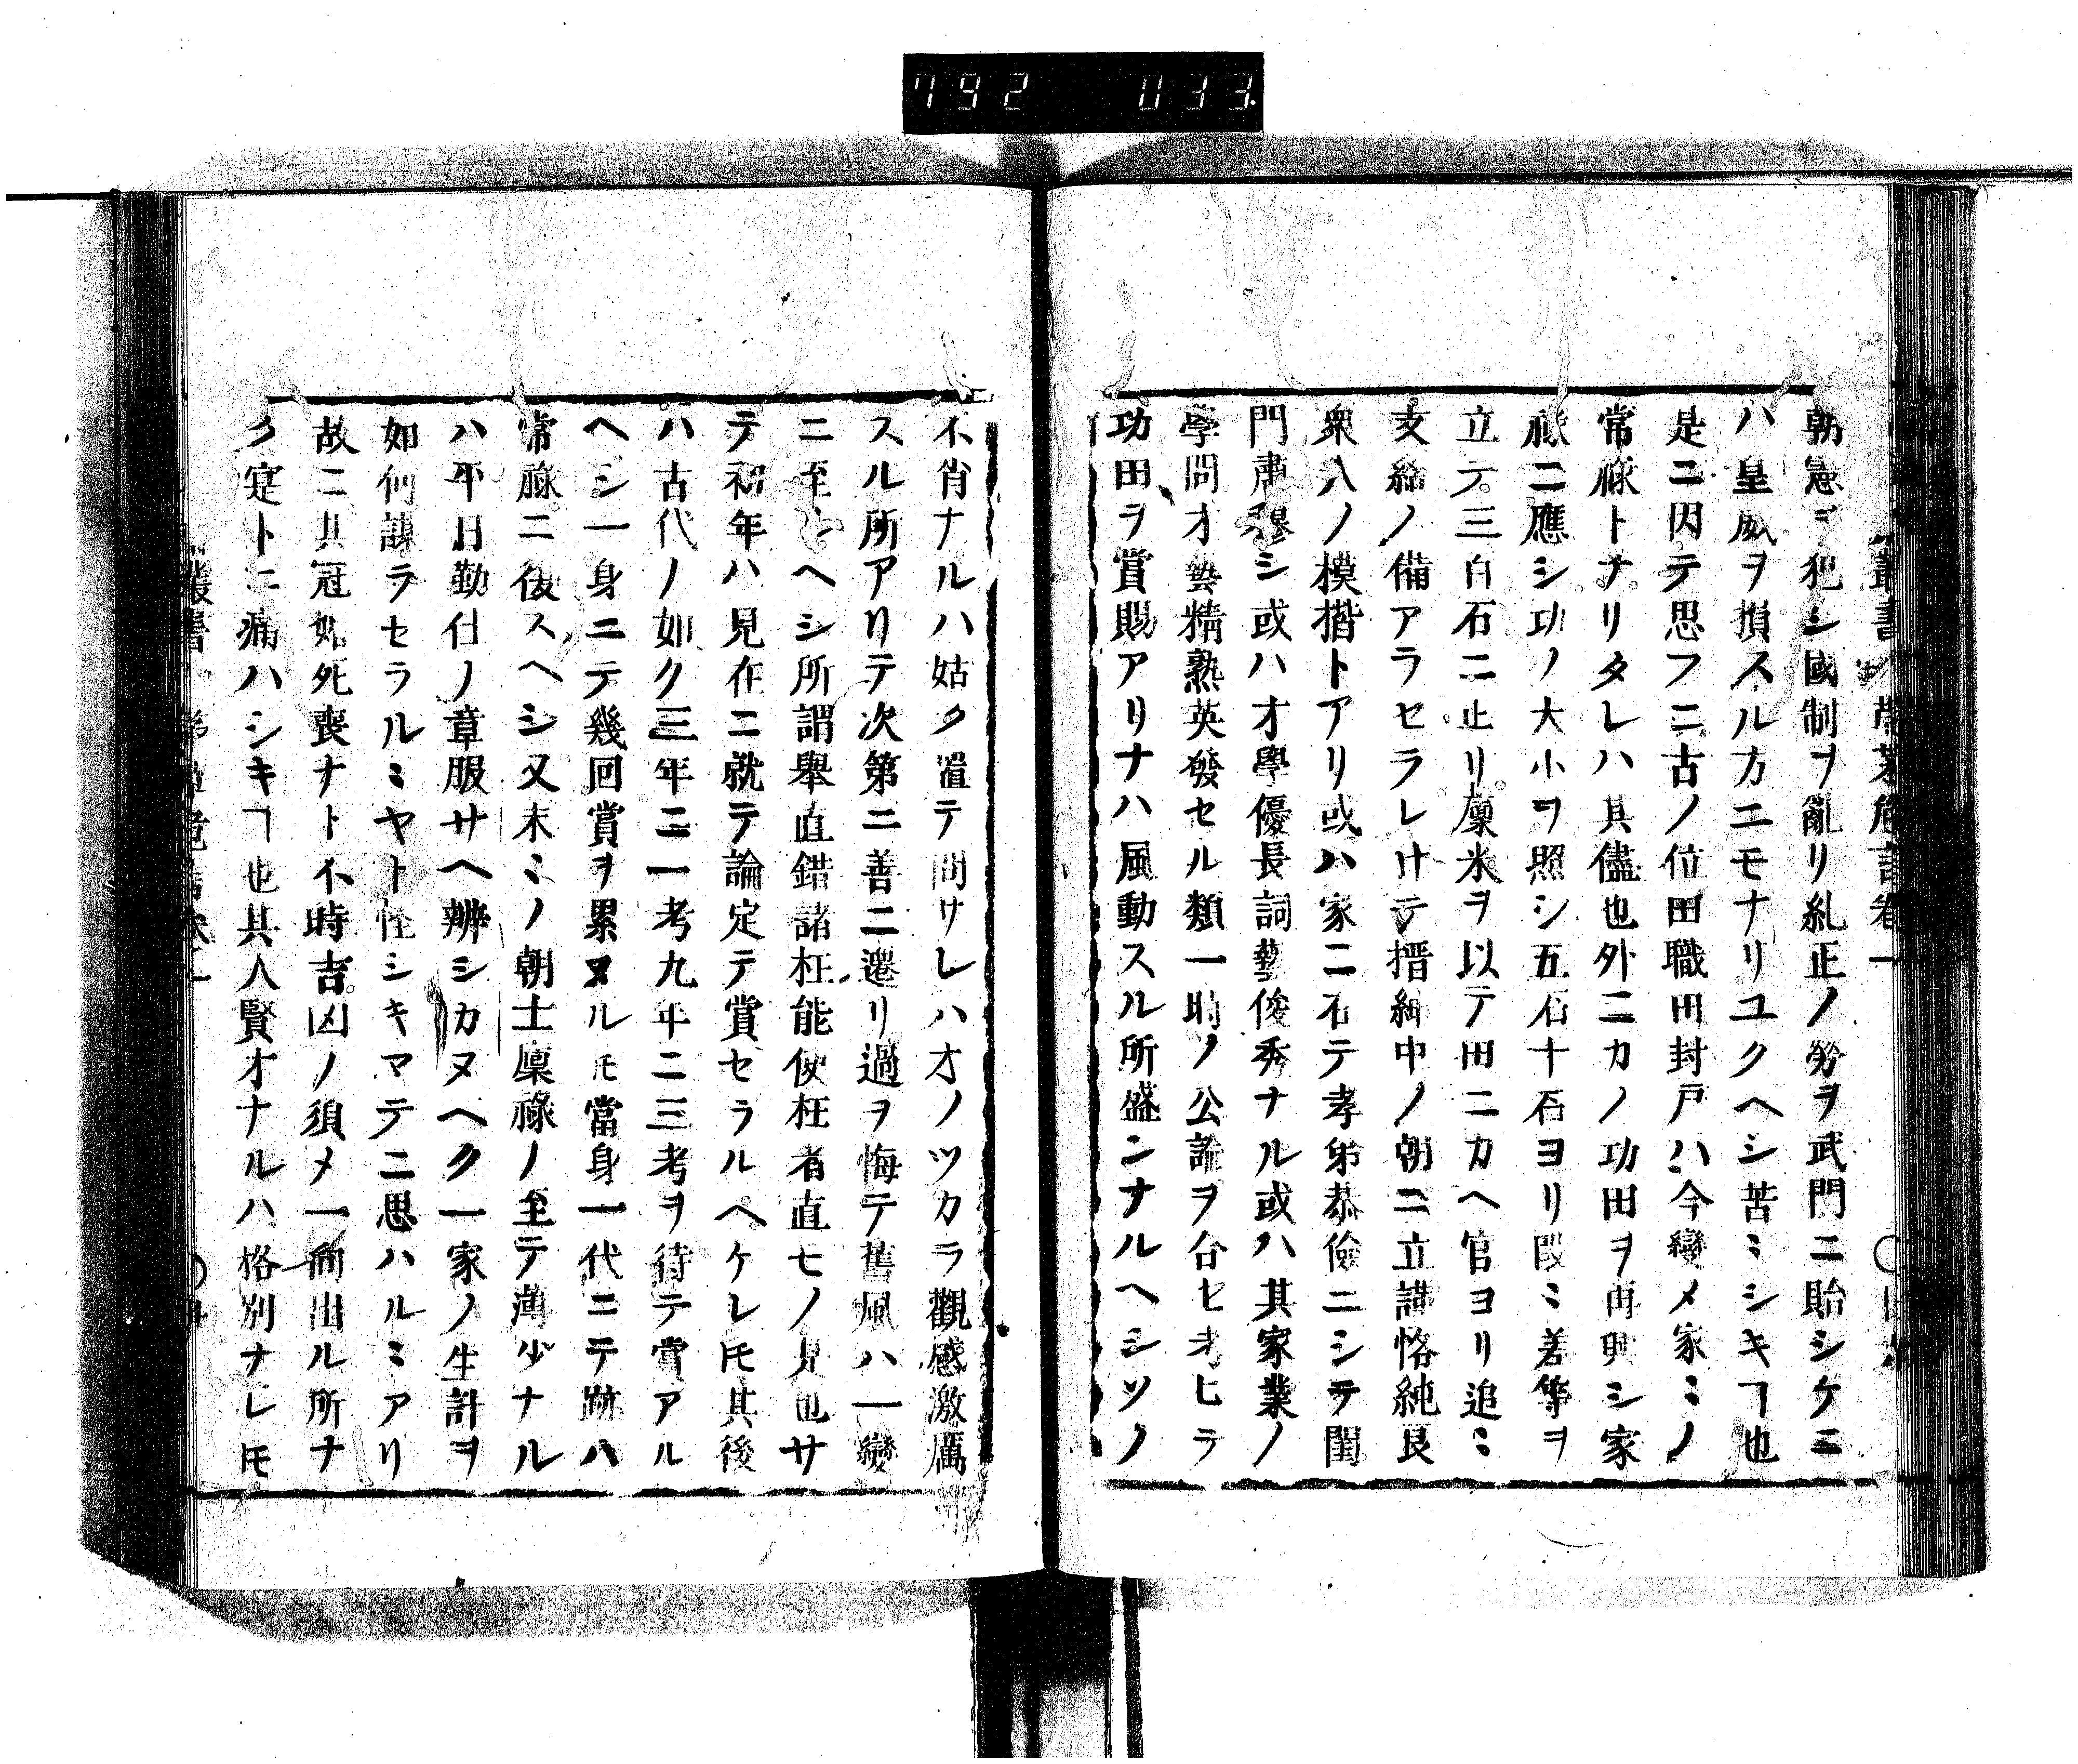 792 033
朝憲ヲ犯シ國制ヲ亂リ糺正ノ勞ヲ武門ニ貽シケニ
ハ皇威ヲ損スル方ニモナリユクヘシ苦ミシキヿ也
是ニ因テ思フニ古ノ位田職田封戸ハ今變メ家ミノ
常祿トナリタレハ其儘也外ニカノ功田ヲ再興シ家
祿ニ應シ功ノ大小ヲ照シ五石十石ヨリ段ミ差等ヲ
立テ三百石ニ止リ廩米ヲ以テ田ニカヘ官ヨリ追ミ
支給ノ備アラセラレけテ搢紳中ノ朝ニ立謹恪純良
衆人ノ模楷トアリ或ハ家ニ在テ孝弟恭儉ニシテ閨
門肅穆シ或ハ才學優長詞藝俊秀ナル或ハ其家業ノ
學問才藝精熟英發セル類一時ノ公論ヲ合セ考ヒテ
功田ヲ賞賜アリナハ風動スル所盛ンナルヘシソノ
不肖ナルハ姑ク置テ問サレハオノツカラ觀感激厲
スル所アリテ次第ニ善ニ遷リ過ヲ悔テ舊風ハ一變
ニ至ルヘシ所謂舉直錯諸枉能使枉者直モノ是也サ
テ初年ハ見在ニ就テ論定テ賞セラルヘケレ𪜈其後
ハ古代ノ如ク三年ニ一考九年ニ三考ヲ待テ賞アル
ヘシ一身ニテ幾回賞ヲ累ヌル𪜈當身一代ニテ跡ハ
常祿ニ復スヘシ又末ミノ朝士廩祿ノ至テ薄少ナル
ハ平日勤仕ノ章服サヘ辨シカヌヘク一家ノ生計ヲ
如何謀ラセラルミヤト怪シキマテニ思ハルミアリ
故ニ其冠婚死喪ナト不時吉凶ノ須メ一向出ル所ナ
ク寔トニ痛ハシキヿ也其人賢才ナルハ格別ナレ𪜈